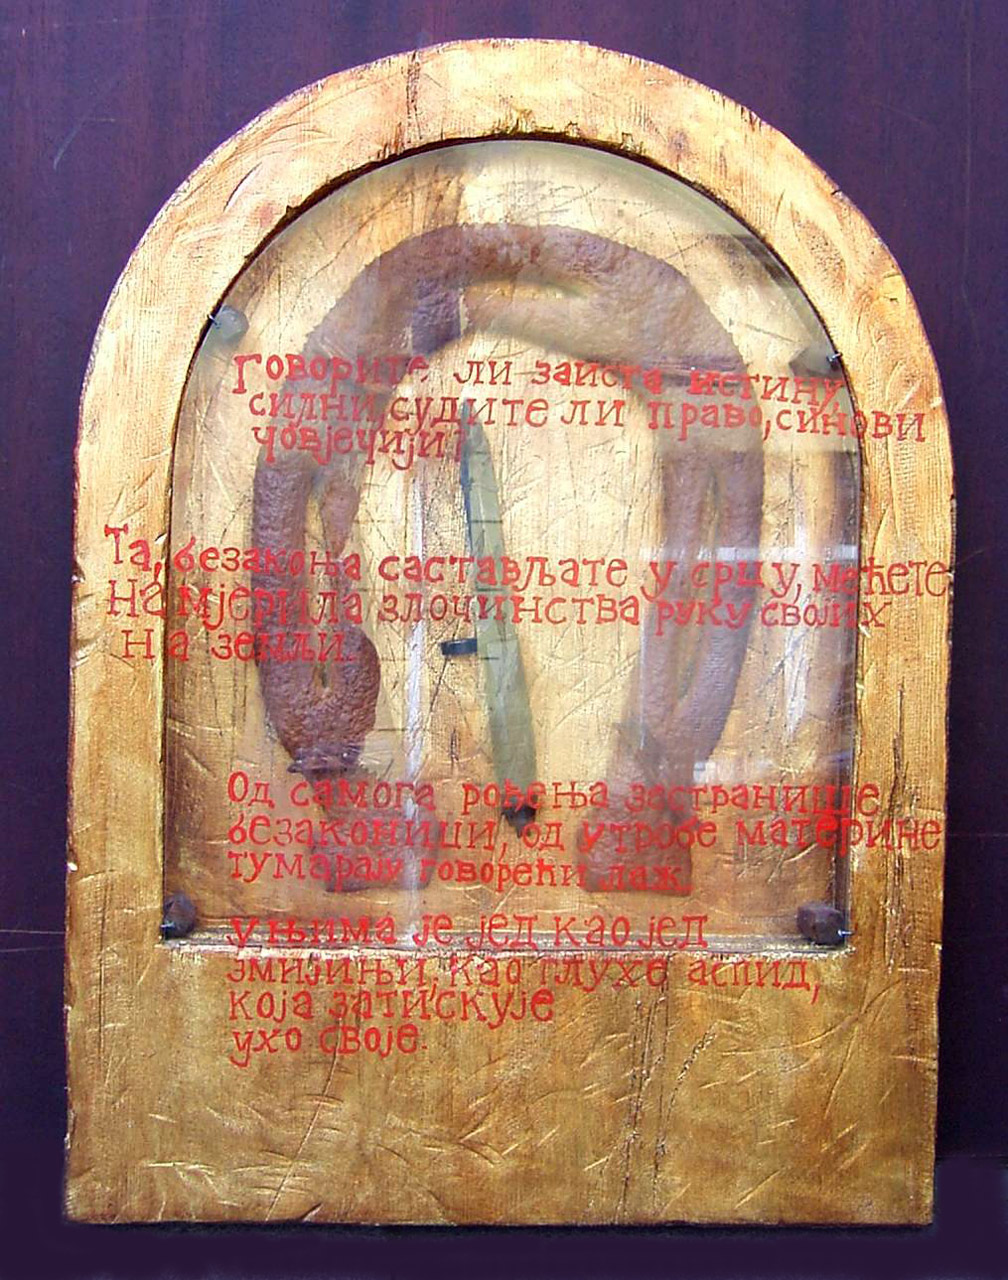 Говорите ли заиста истину,
силни, судите ли право, синови
човјечији?
Та, безакоња састављате у срцу, мећете
на мјерила злочинства руку својих
на земљи.
Од самога рођења застранише
безаконици, од утробе материне
тумарају говорећи лаж.
у њима је јед као јед
змијињи, као глухе аспид,
која затискује
ухо своје.